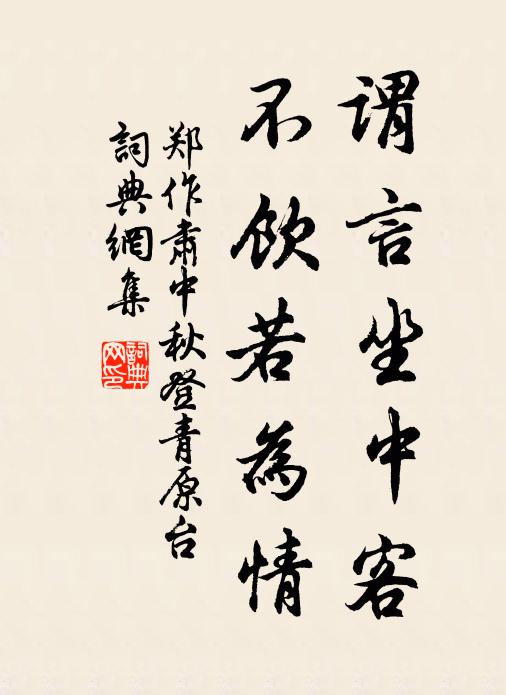 谓言坐中客
不饮若為情
郑作肃中秋登青原台
詞典網集
詞典網印